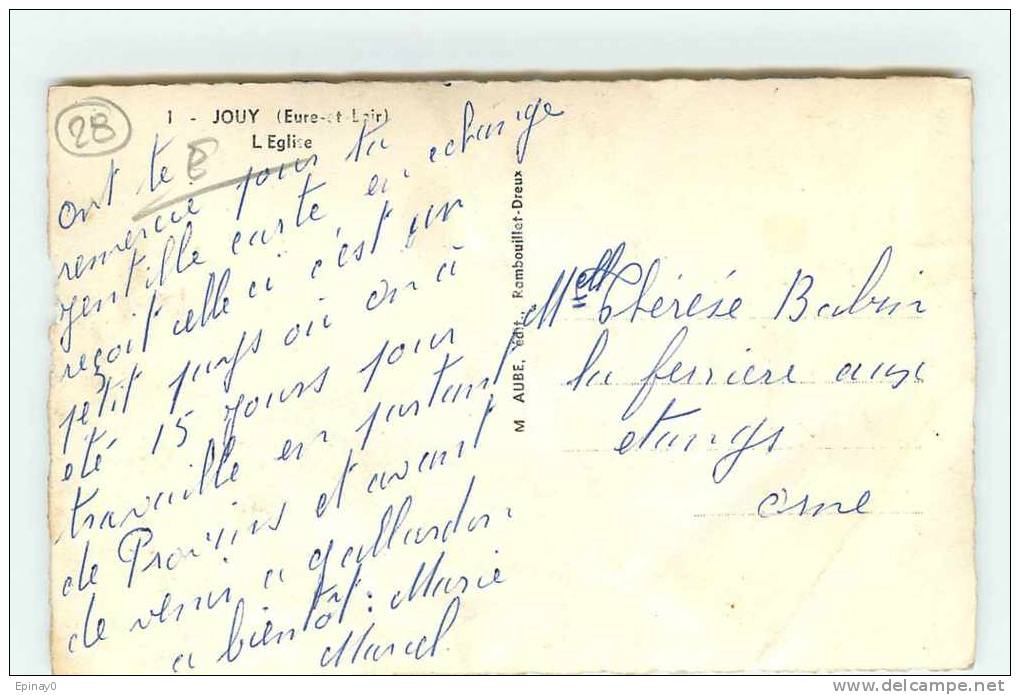 28
1 - JOUY (Eure-et-Loir)
L'Eglise
ont te
remercie pour ta
gentille carte en echange
reçoit celle ci c'est un
petit pays où on a
été 15 jours pour
travaille en partant
de Provins et avant
de venir a gallardon
a bientôt : Marie
Marcel
M AUBE, édit., Rambouillet-Dreux
Melle Thérésé Babin
la ferriere aux
etangs
orne
Epinay0
delcampe.net